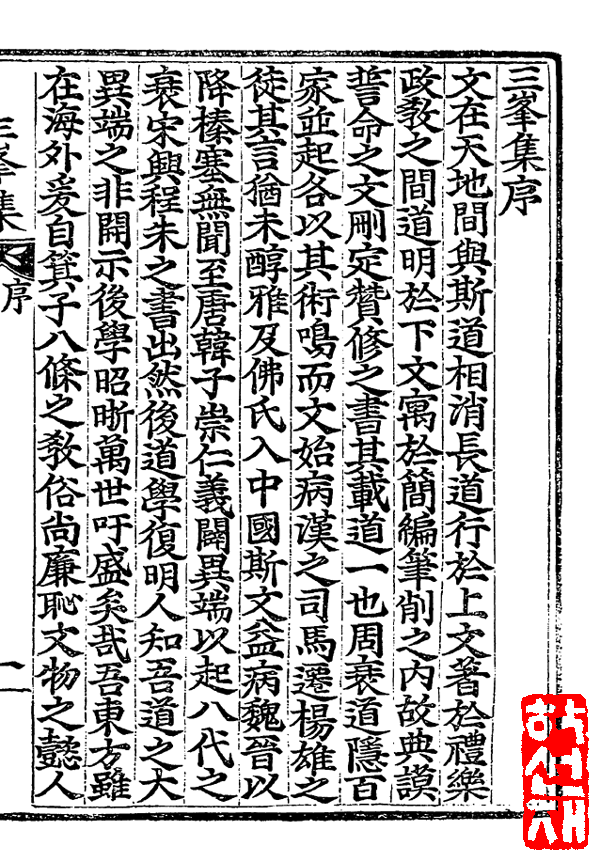 三峯集序
文在天地間與斯道相消長道行於上文著於禮樂
政敎之間道明於下文寓於簡編筆削之內故典謨
誓命之文刪定贊修之書其載道一也周衰道隱百
家並起各以其術鳴而文始病漢之司馬遷楊雄之
徒其言猶未醇雅及佛氏入中國斯文益病魏晉以
降榛塞無聞至唐韓子崇仁義闢異端以起八代之
衰宋興程朱之書出然後道學復明人知吾道之大
異端之非開示後學昭晣萬世吁盛矣哉吾東方雖
在海外爰自箕子八條之敎俗尙廉恥文物之懿人
三峯集
序
一
한선재